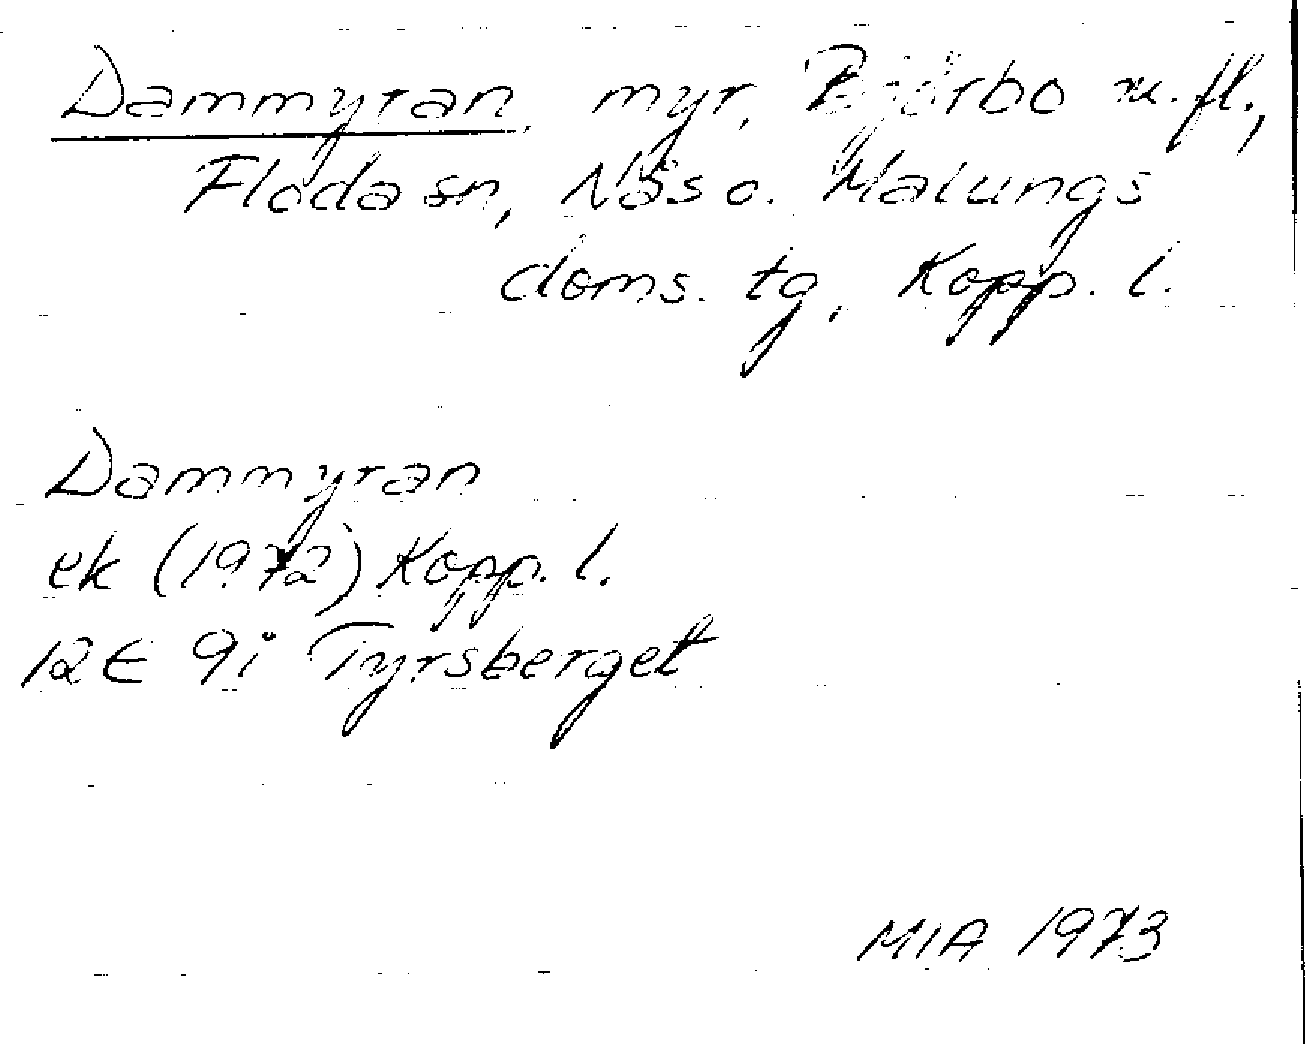 Dammyran, myr, Björbo m.fl.,
Floda sn, Näs o. Malungs
doms. tg, Kopp. l.
Dammyran
ek (1972) Kopp. l.
12E 9i Tyrsberget
MIA 1973